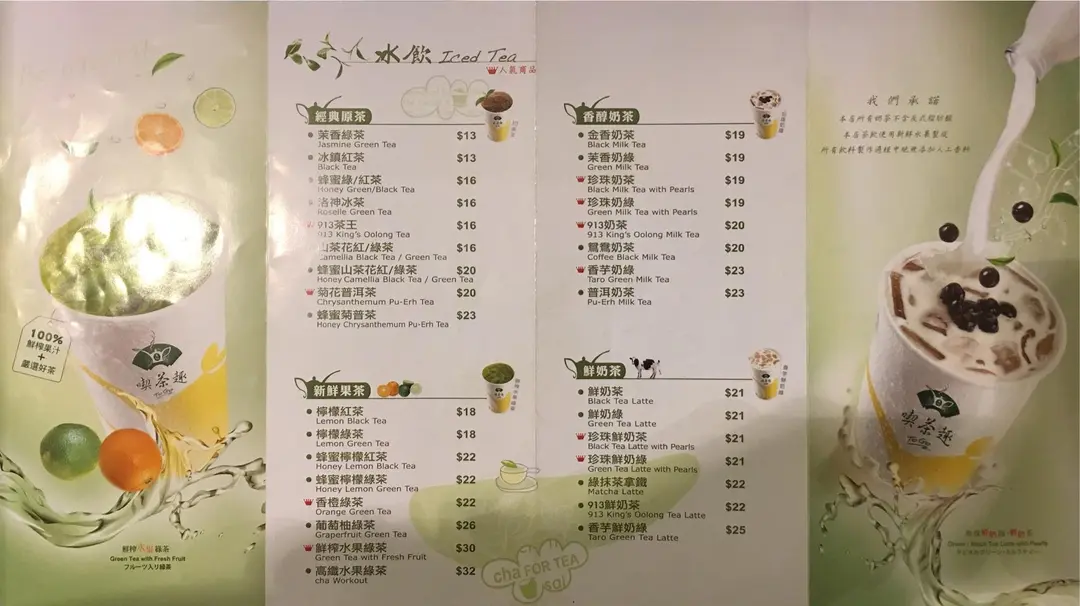 100%
鮮榨果汁
+
嚴選好茶
喫茶趣
ToGo
鮮榨水果綠茶
Green Tea with Fresh Fruit
フルーツ入り緑茶
冰飲 Iced Tea
人氣商品
經典原茶
茉香綠茶 $13
Jasmine Green Tea
冰鎮紅茶 $13
Black Tea
蜂蜜綠/紅茶 $16
Honey Green/Black Tea
洛神冰茶 $16
Roselle Green Tea
913茶王 $16
913 King's Oolong Tea
山茶花紅/綠茶 $16
Camellia Black Tea / Green Tea
蜂蜜山茶花紅/綠茶 $20
Honey Camellia Black Tea / Green Tea
菊花普洱茶 $20
Chrysanthemum Pu-Erh Tea
蜂蜜菊普茶 $23
Honey Chrysanthemum Pu-Erh Tea
新鮮果茶
檸檬紅茶 $18
Lemon Black Tea
檸檬綠茶 $18
Lemon Green Tea
蜂蜜檸檬紅茶 $22
Honey Lemon Black Tea
蜂蜜檸檬綠茶 $22
Honey Lemon Green Tea
香橙綠茶 $22
Orange Green Tea
葡萄柚綠茶 $26
Graperfruit Green Tea
鮮榨水果綠茶 $30
Green Tea with Fresh Fruit
高纖水果綠茶 $32
cha Workout
香醇奶茶
金香奶茶 $19
Black Milk Tea
茉香奶綠 $19
Green Milk Tea
珍珠奶茶 $19
Black Milk Tea with Pearls
珍珠奶綠 $19
Green Milk Tea with Pearls
913奶茶 $20
913 King's Oolong Milk Tea
鴛鴦奶茶 $20
Coffee Black Milk Tea
香芋奶綠 $23
Taro Green Milk Tea
普洱奶茶 $23
Pu-Erh Milk Tea
鮮奶茶
鮮奶茶 $21
Black Tea Latte
鮮奶綠 $21
Green Tea Latte
珍珠鮮奶茶 $21
Black Tea Latte with Pearls
珍珠鮮奶綠 $21
Green Tea Latte with Pearls
綠抹茶拿鐵 $22
Matcha Latte
913鮮奶茶 $22
913 King's Oolong Tea Latte
香芋鮮奶綠 $25
Taro Green Tea Latte
cha FOR TEA
我們承諾
本店所有奶茶不含反式脂肪酸
本店茶飲使用新鮮水果製成
所有飲料製作過程中絕無添加人工香料
喫茶趣
ToGo
Green / Black Tea Latte with Pearls